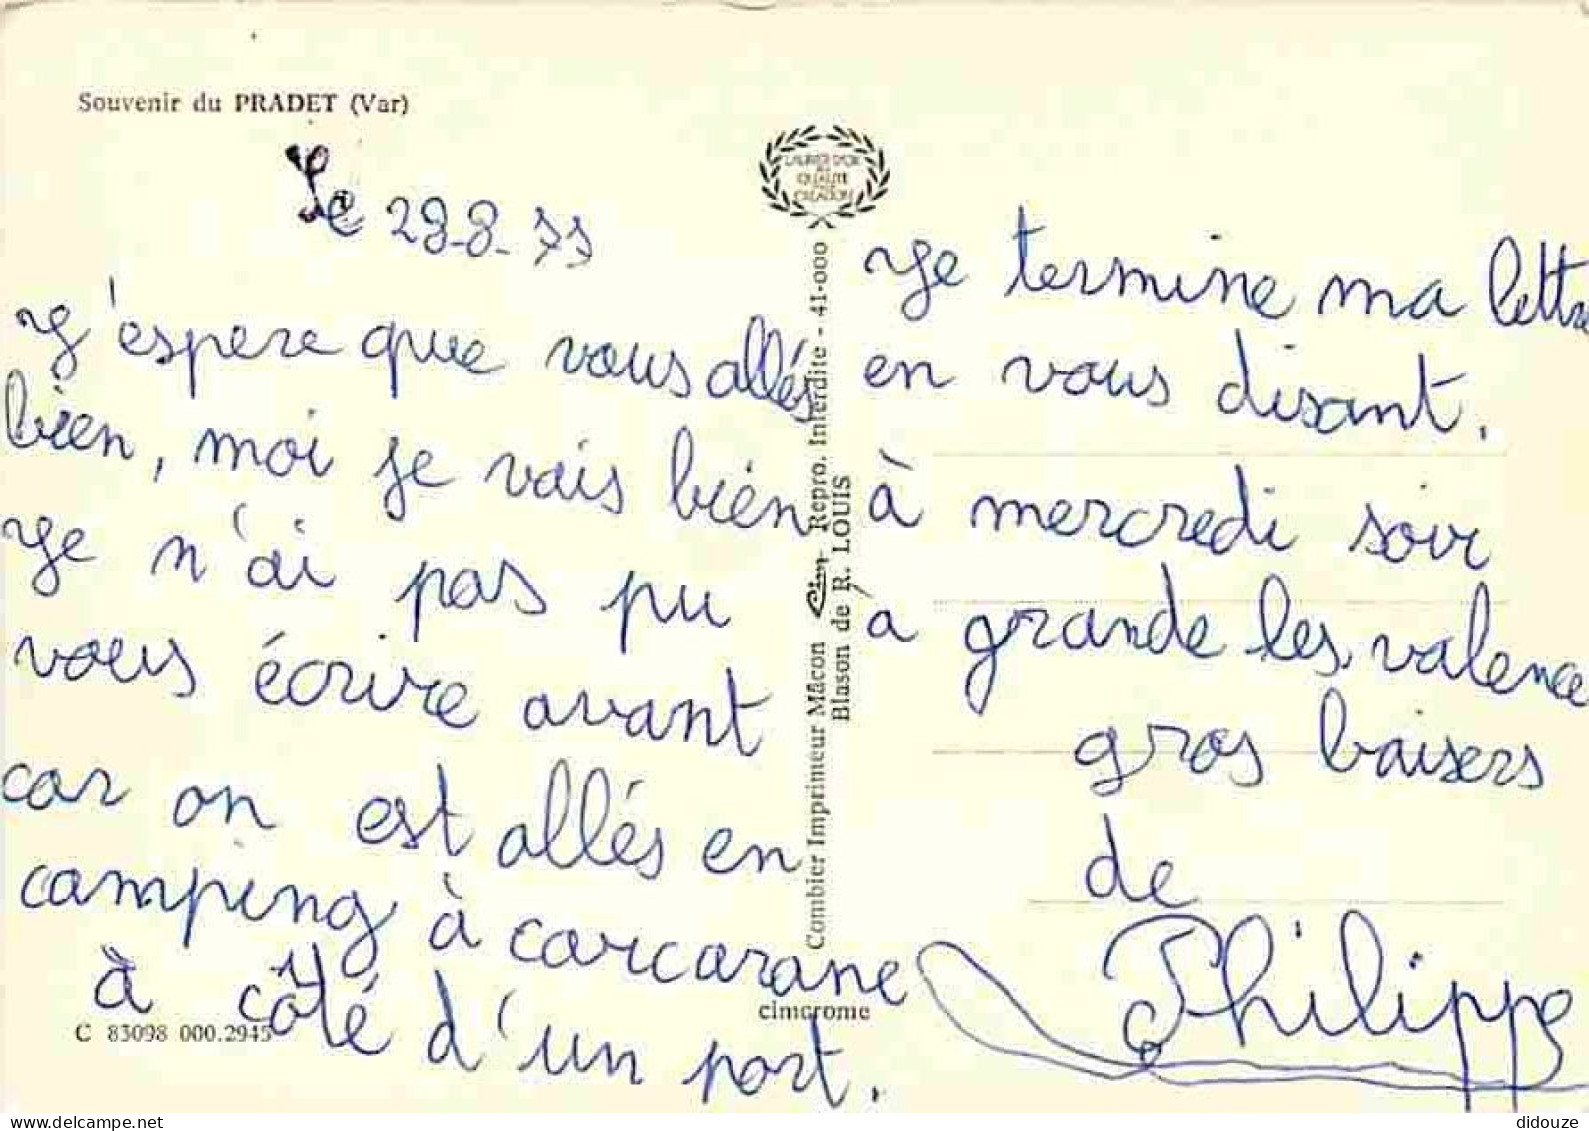 Souvenir du PRADET (Var)
LAURIER D'OR
QUALITÉ
CRÉATION
Le 28-8-77
J'espere que vous allés
bien, moi je vais bien
Je n'ai pas pu
vous écrire avant
car on est allés en
camping à carcarane
à côté d'un port.
C 83098 000.2945
Combier Imprimeur Mâcon Cim Repro. Interdite - 41-000
Blason de R. LOUIS
cimcrome
Je termine ma lettre
en vous disant.
à mercredi soir
a grande les valence
gros baisers
de
Philippe
delcampe.net
didouze